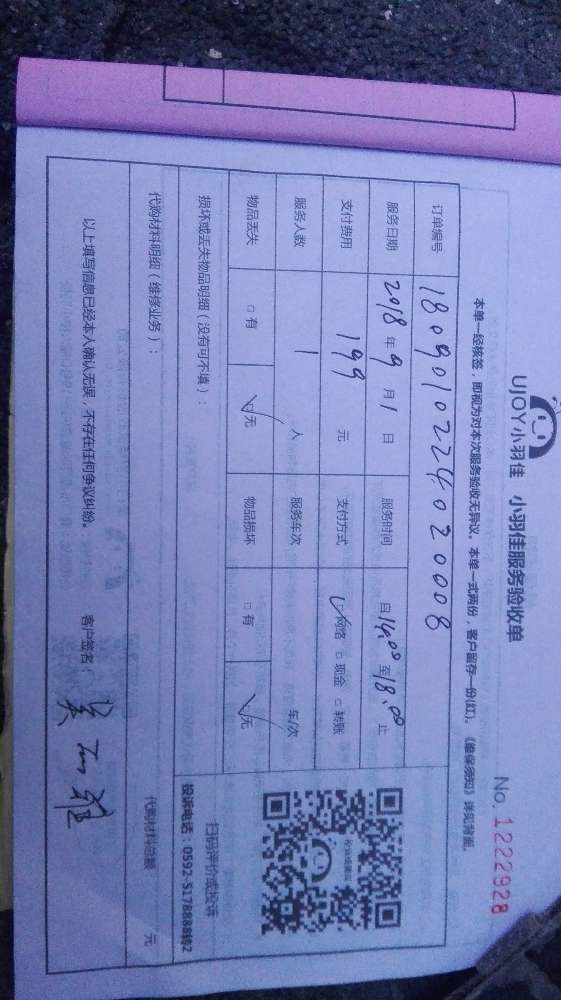 UJOY小羽佳 小羽佳服务验收单
No. 1222928
本单一经核签，即视为对本次服务验收无异议。本单一式两份，客户留存一份(红)。《维保须知》详见背面。
订单编号 1809010224020008
服务日期 2018年9月1日 服务时间 自14:00至18:00止
支付费用 199元 支付方式 ☑网络 □现金 □转账
服务人数 1人 服务车次 车/次
物品丢失 □有 ☑无 物品损坏 □有 ☑无
扫码评价或投诉
投诉电话：0592-5178888转2
损坏或丢失物品明细（没有可不填）：
代购材料明细（维修业务）：
代购材料总额： 元
以上填写信息已经本人确认无误，不存在任何争议纠纷。 客户签名：